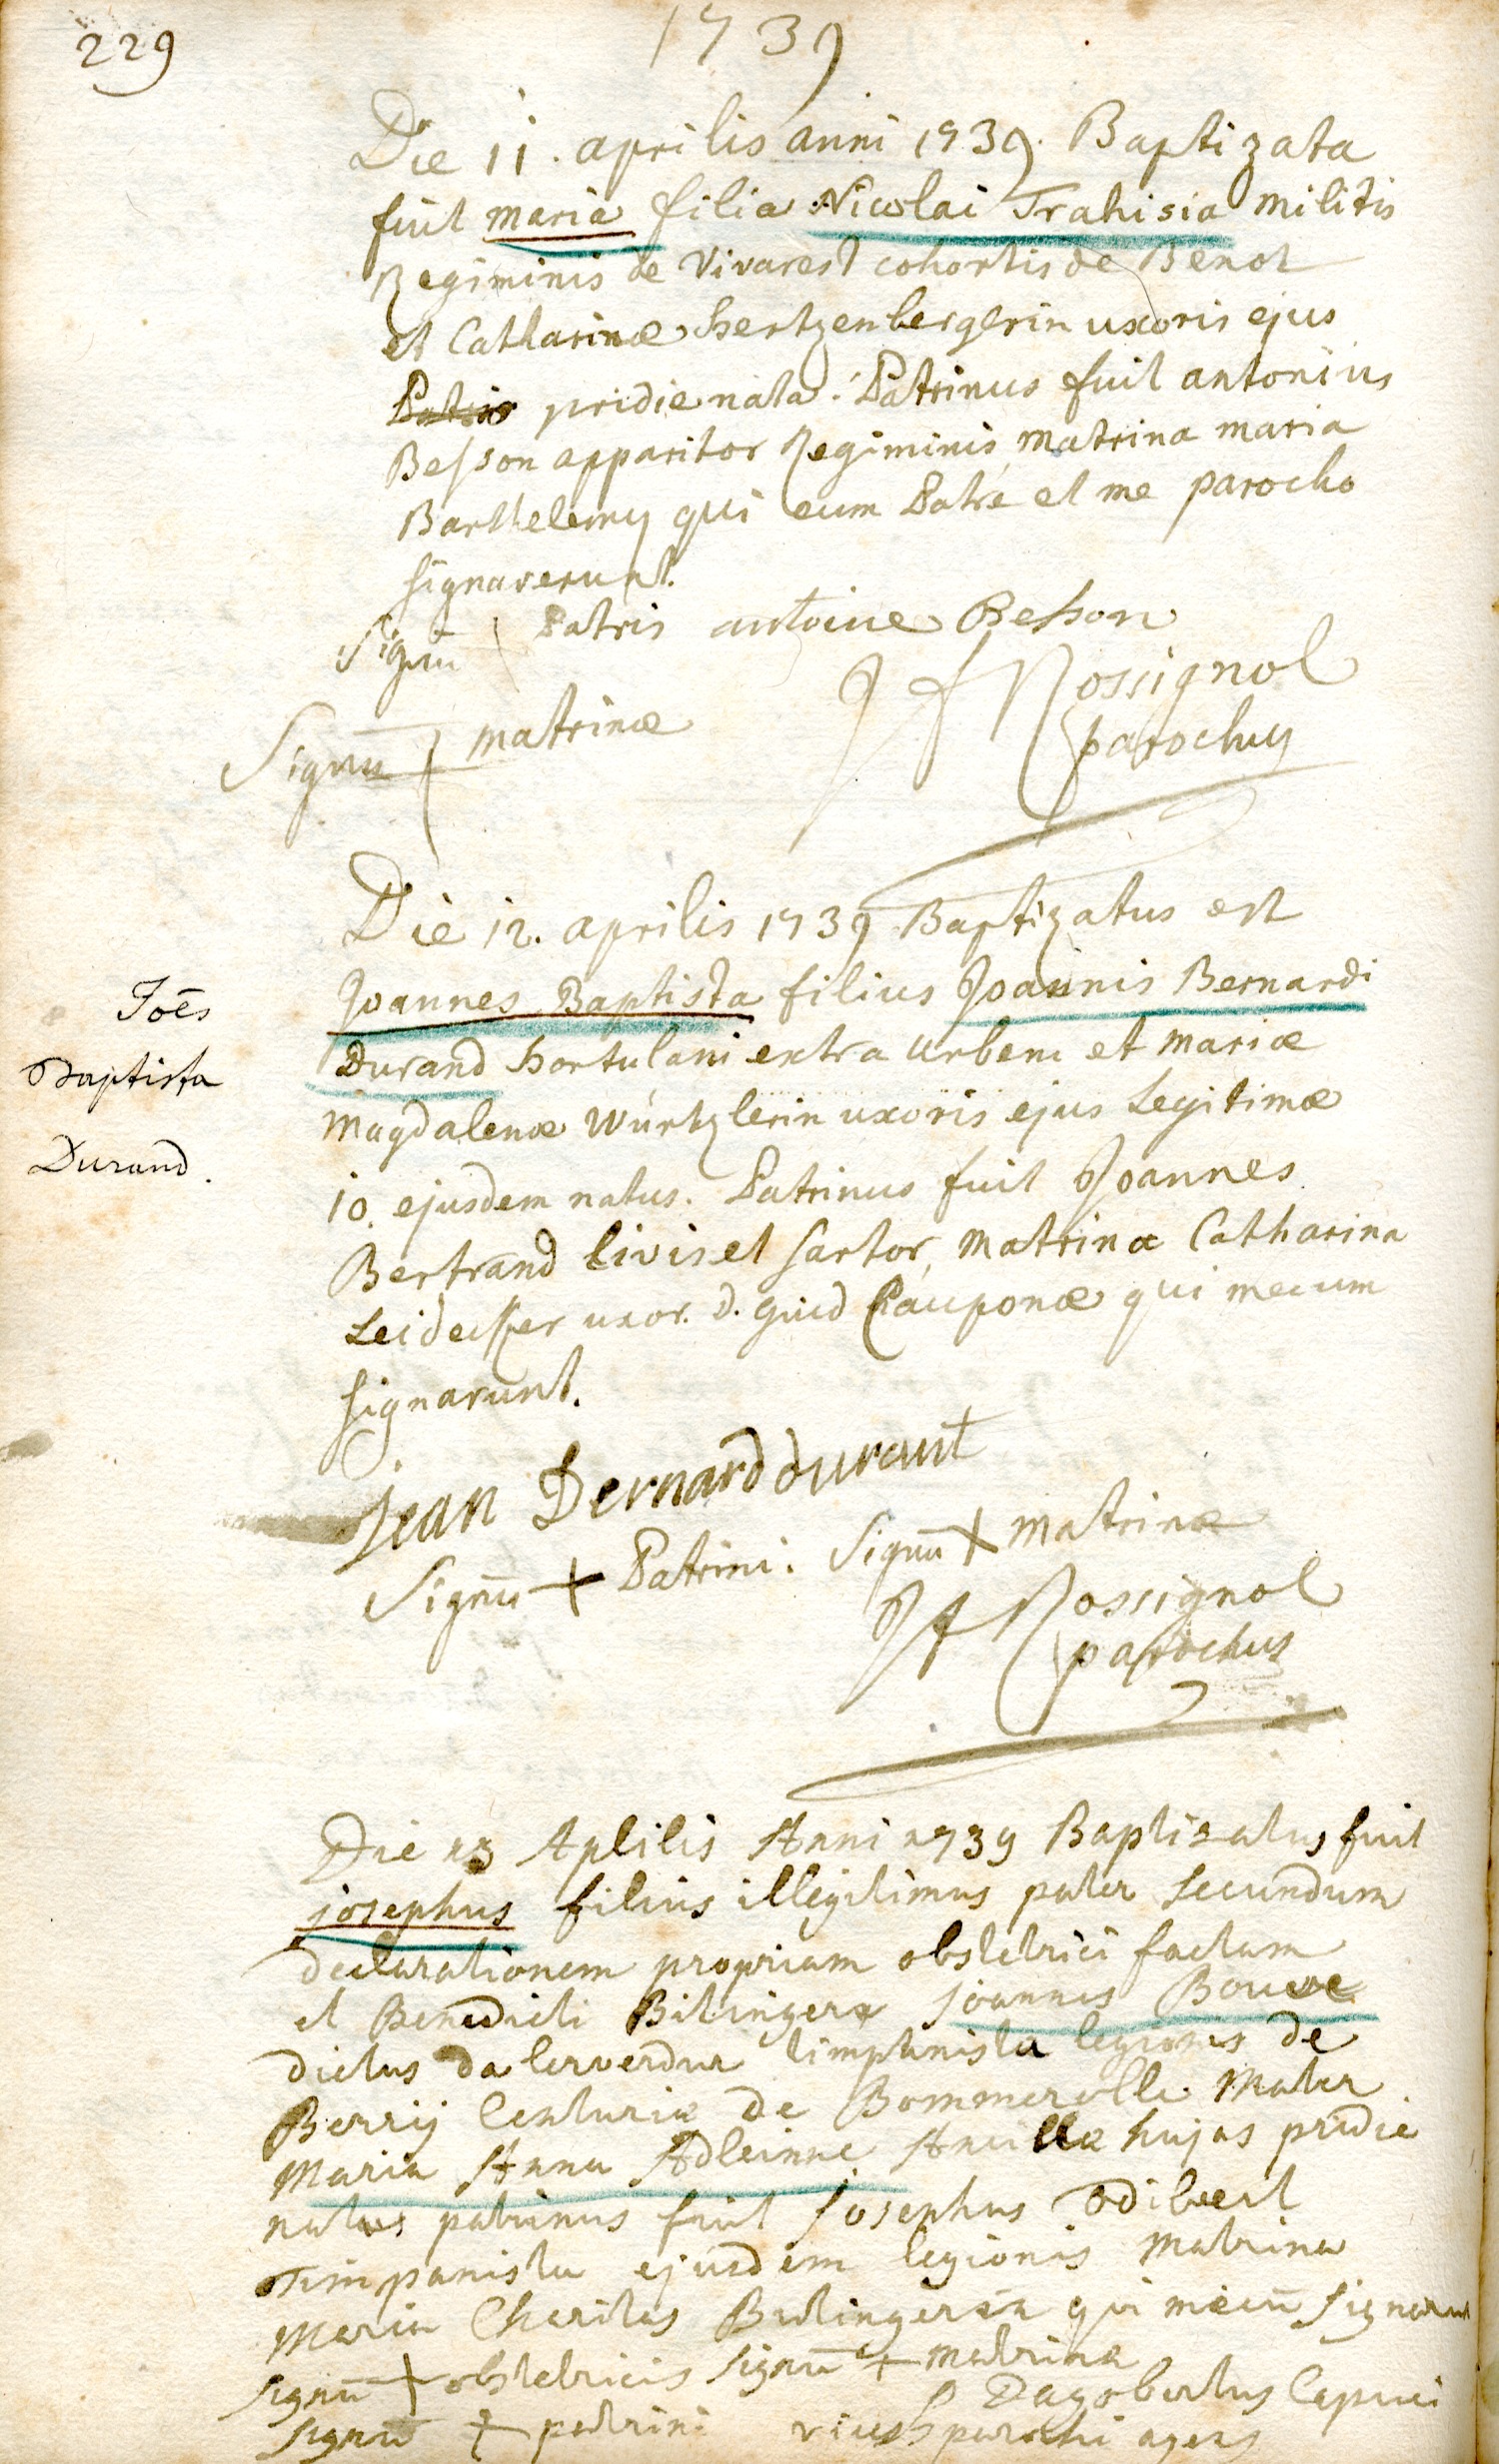 229
1739
Die 11. aprilis anni 1739. Baptizata
fuit maria filia Nicolai Trahisia militis
Regiminis de Vivarest cohortis de Benot
et Catharinæ hertzenbergerin uxoris ejus
pridie nata. Patrinus fuit antonius
Besson apparitor Regiminis, matrina maria
Barthelemy qui cum Patre et me parocho
signaverunt.
Signū Patris antoine Besson
Signū matrinæ
J F Rossignol
parochus
Die 12. aprilis 1739 Baptizatus est
Joannes Baptista filius Joannis Bernardi
Durand hortulani extra urbem et mariæ
Magdalenæ Würtzlerin uxoris ejus Legitimæ
10. ejusdem natus. Patrinus fuit Joannes
Bertrand Civis et sartor, Matrina Catharina
Leidecker uxor. d. Guid Cauponæ qui mecum
signarunt.
Joēs
Baptista
Durand.
jean Bernard durant
Signū + Patrini. Signū + matrinæ
J F Rossignol
parochus
Die 13 Aplilis Anni 1739 Baptizatus fuit
josephus filius illegitimus pater secundum
declarationem propriam obstetrici factam
et Benedicti Bitingera joannes Boueve
dictus da terverdur timpanista legionis de
Berrij Centuriæ de Bommerelle Mater
Maria Anna Adleinne Ancilla hujas pridie
natus patrinus fuit josephus Odibert
Timpanista ejusdem legionis Matrina
Maria Charitas Bitingerin qui mecū signarunt
signū + obstetricis signū + matrina
signū + patrini
P Dagobertus Capuci
vices parochi agens